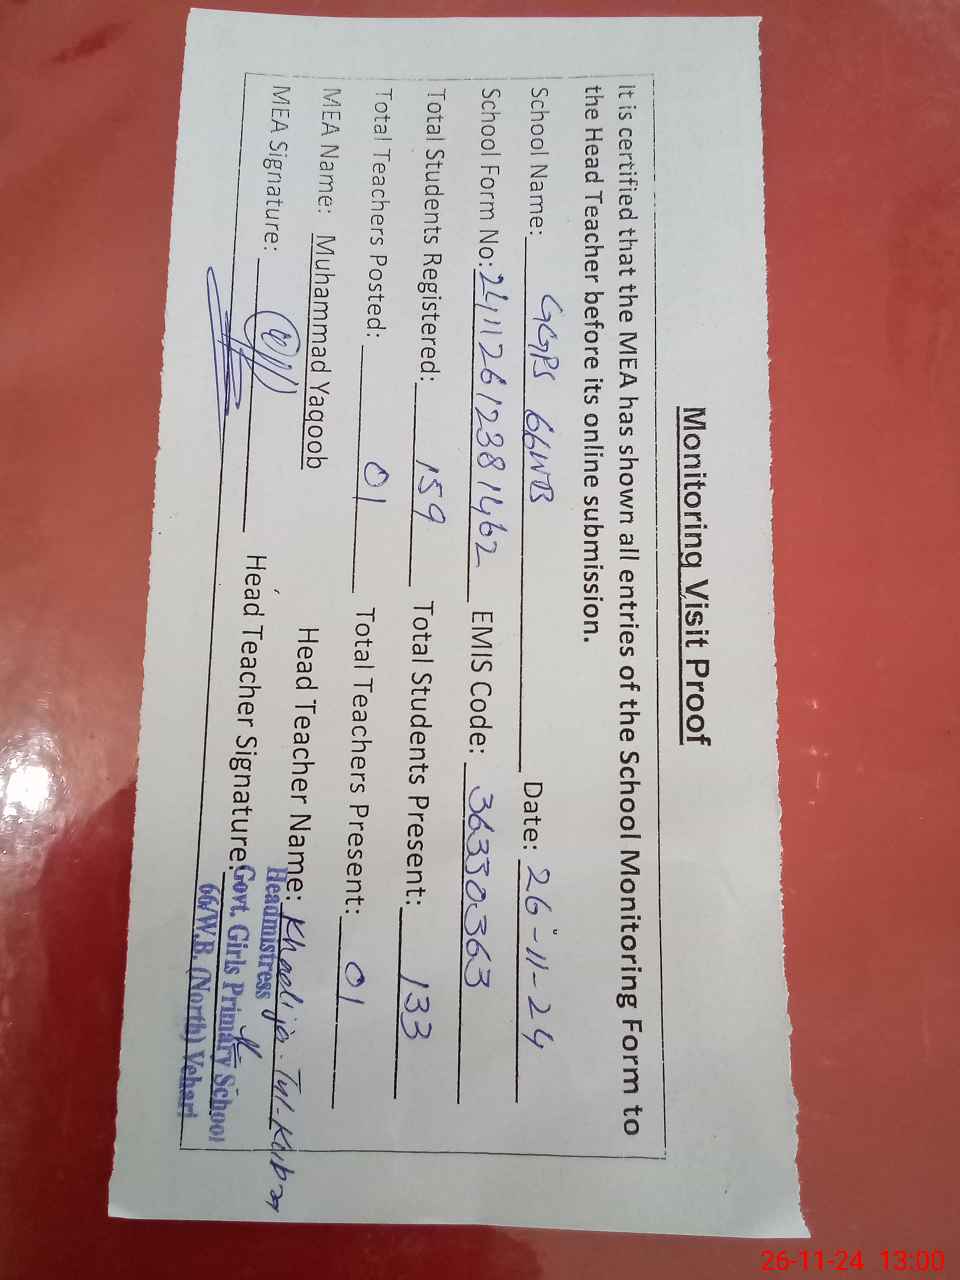 Monitoring Visit Proof
It is certified that the MEA has shown all entries of the School Monitoring Form to
the Head Teacher before its online submission.
School Name: GGPS 66WB Date: 26-11-24
School Form No: 24112612381462 EMIS Code: 36330363
Total Students Registered: 159 Total Students Present: 133
Total Teachers Posted: 01 Total Teachers Present: 01
MEA Name: Muhammad Yaqoob Head Teacher Name: Khadija-Tul-Kubra
MEA Signature: Head Teacher Signature:
Headmistress
Govt. Girls Primary School
66/W.B. (North) Vehari
26-11-24 13:00